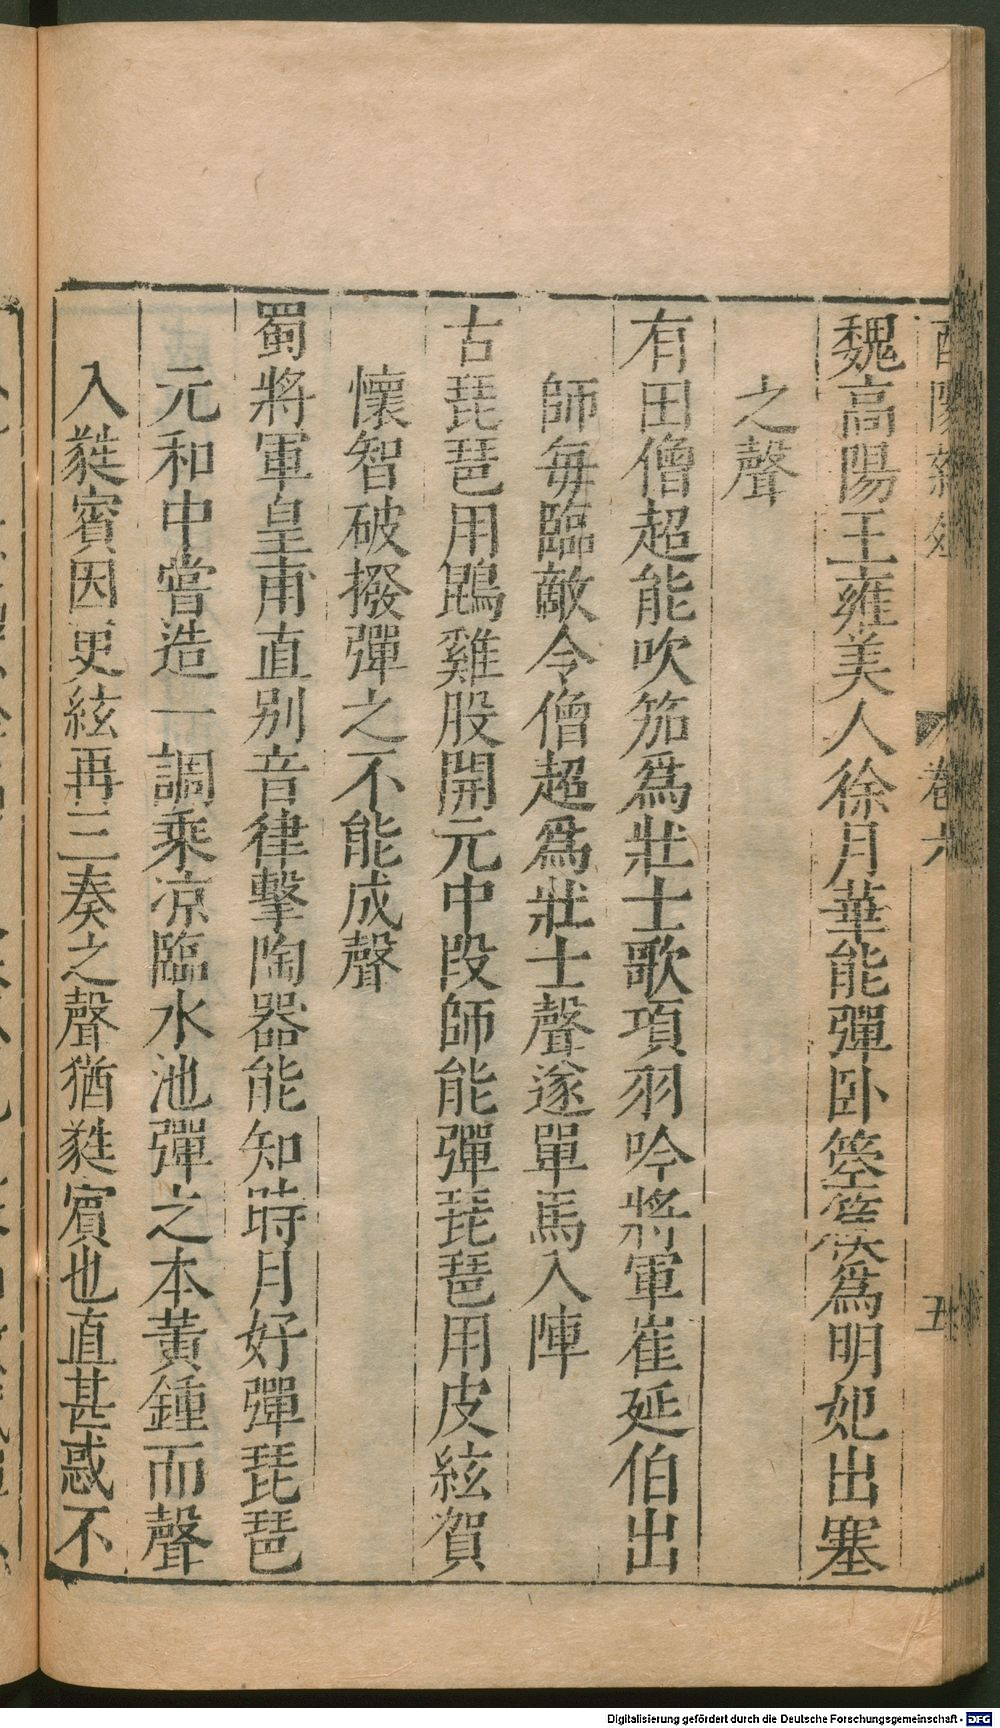 酉陽雜俎 卷六 五
魏高陽王雍美人徐月華能彈卧箜篌爲明妃出塞
之聲
有田僧超能吹笳爲壯士歌項羽吟將軍崔延伯出
師每臨敵令僧超爲壯士聲遂單馬入陣
古琵琶用鵾雞股開元中段師能彈琵琶用皮絃賀
懷智破撥彈之不能成聲
蜀將軍皇甫直别音律擊陶器能知時月好彈琵琶
元和中嘗造一調乘凉臨水池彈之本黃鍾而聲
入蕤賓因更絃再三奏之聲猶蕤賓也直甚惑不
Digitalisierung gefördert durch die Deutsche Forschungsgemeinschaft - DFG